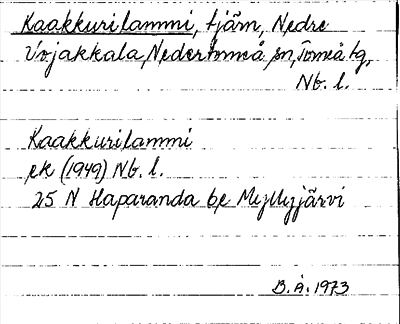 Kaakkurilammi, tjärn, Nedre
Vojakkala, Nedertorneå sn, Torneå tg,
Nb. l.
Kaakkurilammi
ek (1949) Nb. l.
25 N Haparanda be Myllyjärvi
B. Å. 1973